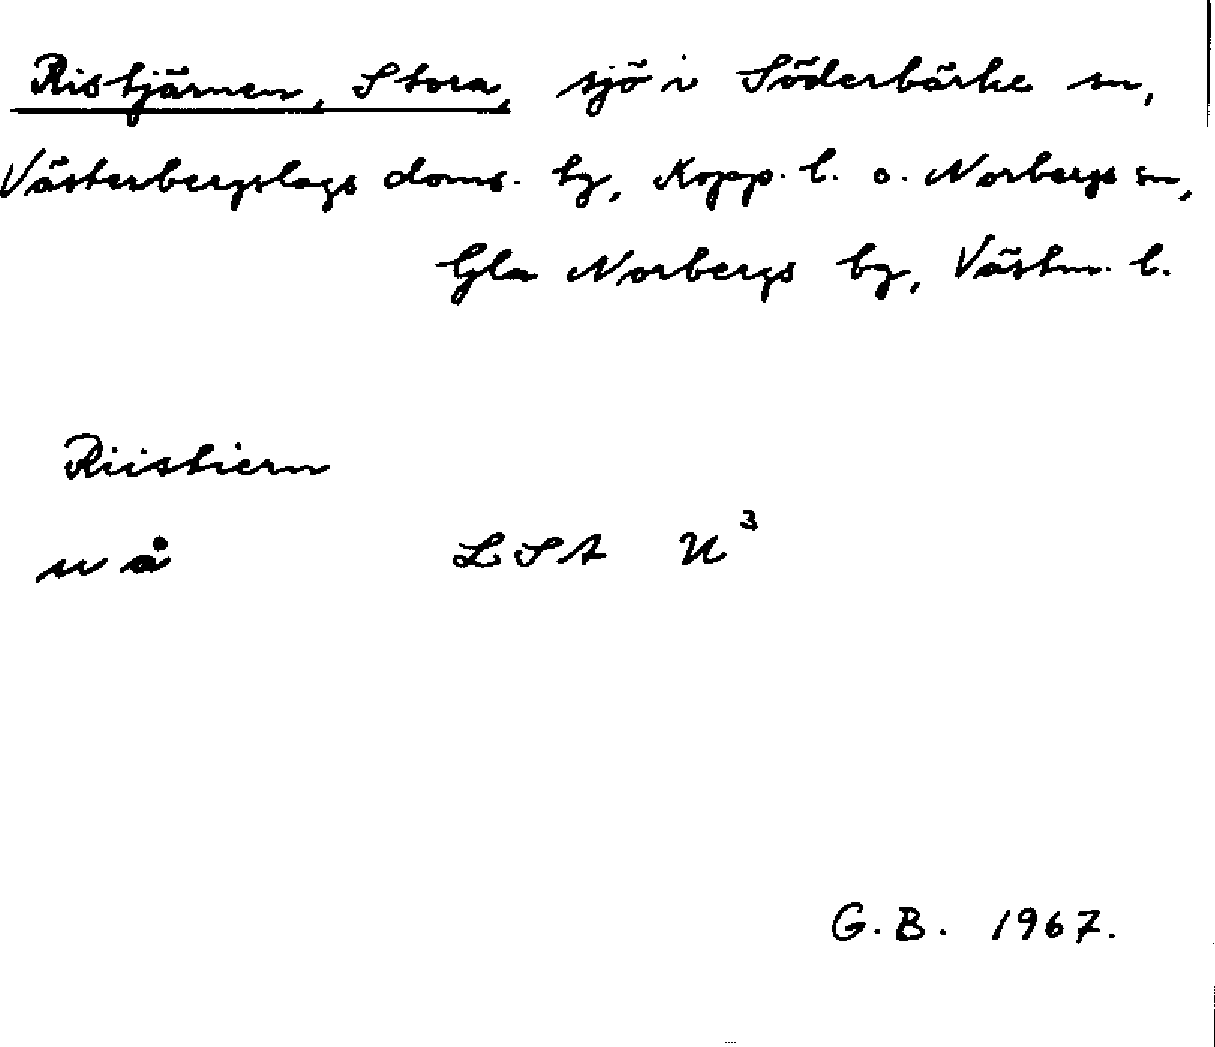 Ristjärnen, Stora, sjö i Söderbärke sn,
Västerbergslags doms. tg, Kopp. l. o. Norbergs sn,
Gla Norbergs bg, Västm. l.
Riistiern
u å LSA U³
G.B. 1967.